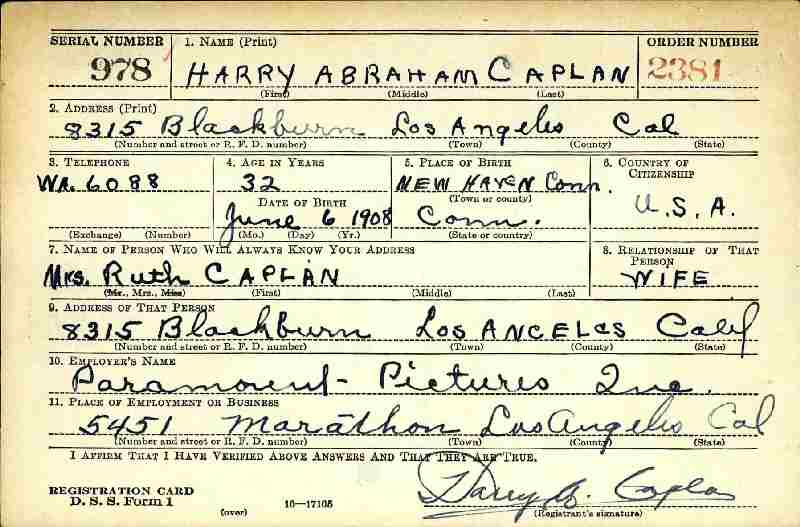 SERIAL NUMBER 1. NAME (Print) ORDER NUMBER
978 HARRY ABRAHAM CAPLAN 2381
(First) (Middle) (Last)
2. ADDRESS (Print)
8315 Blackburn Los Angeles Cal
(Number and street or R. F. D. number) (Town) (County) (State)
3. TELEPHONE 4. AGE IN YEARS 5. PLACE OF BIRTH 6. COUNTRY OF CITIZENSHIP
WA. 6088 32 NEW HAVEN Conn. U.S.A.
DATE OF BIRTH (Town or county)
June 6 1908 Conn.
(Exchange) (Number) (Mo.) (Day) (Yr.) (State or country)
7. NAME OF PERSON WHO WILL ALWAYS KNOW YOUR ADDRESS 8. RELATIONSHIP OF THAT PERSON
Mrs. Ruth CAPLAN WIFE
(Mr., Mrs., Miss) (First) (Middle) (Last)
9. ADDRESS OF THAT PERSON
8315 Blackburn LOS ANGELES Calif
(Number and street or R. F. D. number) (Town) (County) (State)
10. EMPLOYER'S NAME
Paramount- Pictures Inc.
11. PLACE OF EMPLOYMENT OR BUSINESS
5451 Marathon Los Angeles Cal
(Number and street or R. F. D. number) (Town) (County) (State)
I AFFIRM THAT I HAVE VERIFIED ABOVE ANSWERS AND THAT THEY ARE TRUE.
REGISTRATION CARD
D. S. S. Form 1 (over) 16-17105 Harry A. Caplan
(Registrant's signature)